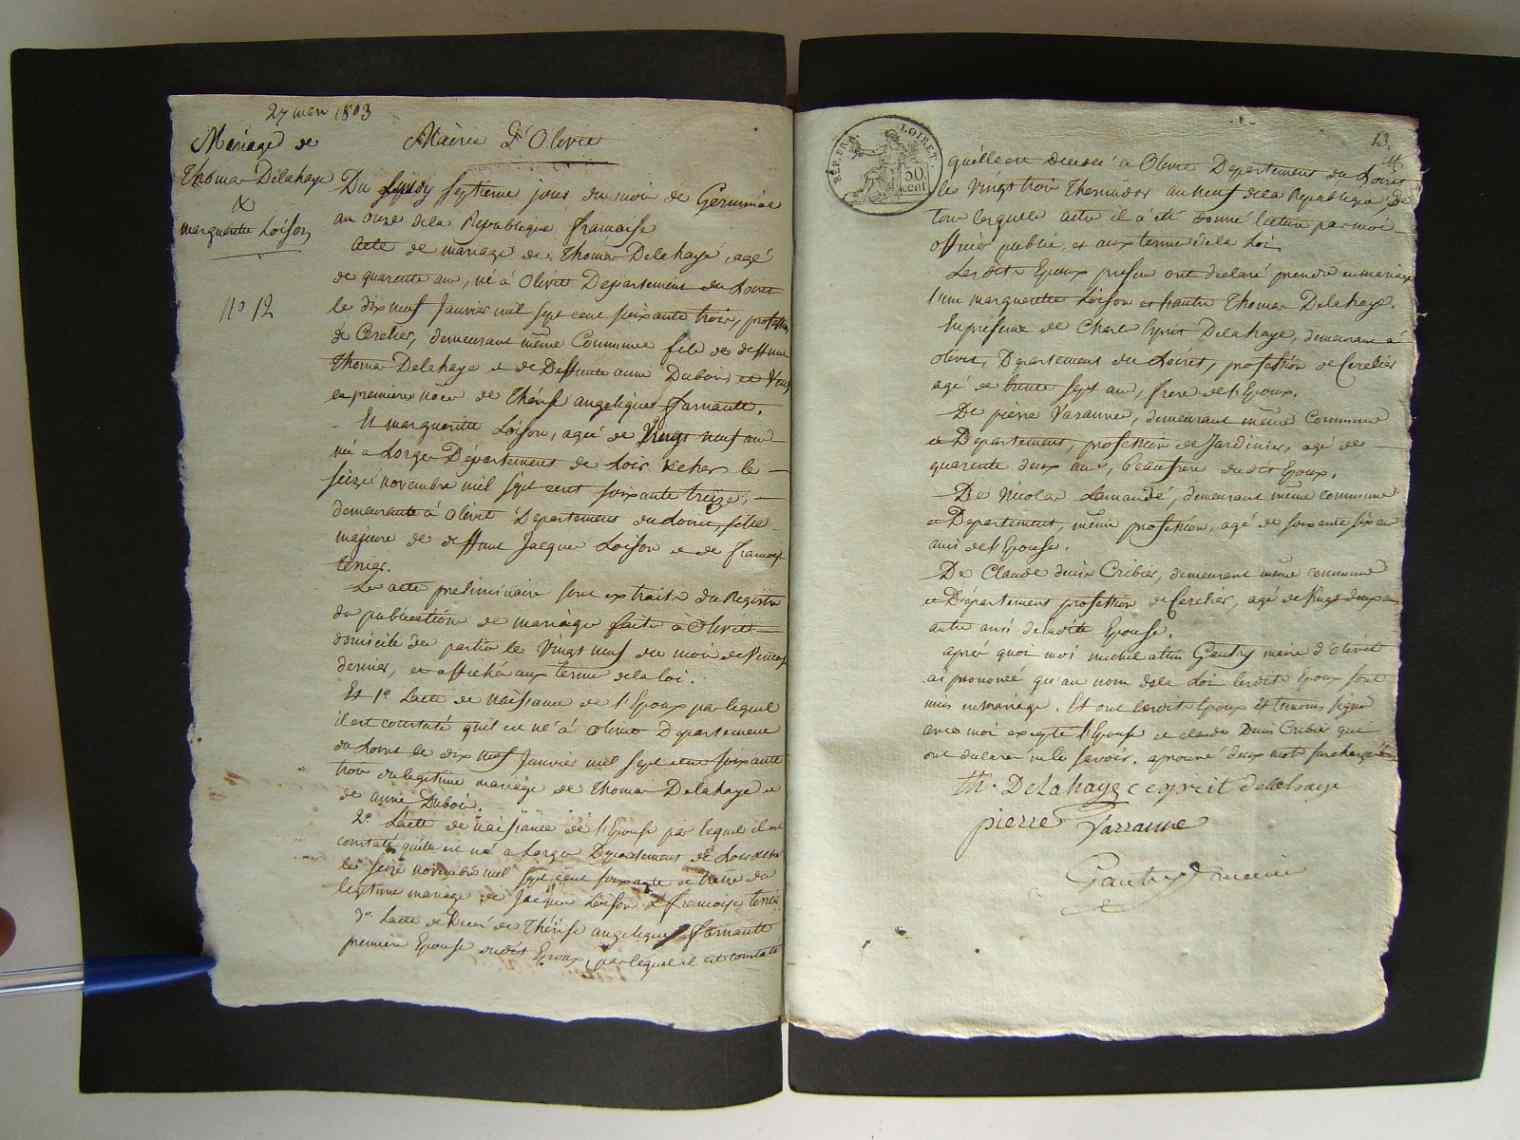 27 mars 1803
Mariage de
Thomas Delahaye
&
marguerite Loison
no 12
Mairie D'Olivet
Du septieme jour du mois de Germinal
an onze de la Republique francaise
acte de mariage de Thomas Delahaye, agé
de quarente ans, né à Olivet Departement du Loiret
le dix neuf Janvier mil sept cent soixante trois, profession
de Cerclier, demeurant même Commune fils de deffunt
Thomas Delahaye et de Deffunte anne Dubois et Veuf
en premiere noce de Thérese angelique
Et marguerite Loison, agée de Vingt neuf ans
né a Lorge Département de Loir et cher le
seize novembre mil sept cent soixante treize,
demeurante à Olivet Departement du Loiret, fille
majeure de deffunt Jacques Loison et de francoise
ternier.
Les actes preliminaires sont extraits du Registre
de publication de mariage faite a Olivet
domicile des parties le Vingt neuf du mois de Ventose
dernier, et affiché aux terme de la loi.
Et 1o Lacte de Naissance de l'Epoux par lequel
il est constaté quil est né à olivet Departement
du Loiret le dix neuf Janvier mil sept cent soixante
trois du legitime mariage de Thomas Delahaye et
de anne Dubois.
2o Lacte de Naissance de l'Epouse par lequel il est
constaté quelle est né a Lorge Departement de Loir et cher
le seize novembre mil sept cent soixante et treize du
legitime mariage de Jacques Loison et francoise ternier
3o Lacte de Décé de Thérese angelique
premiere Epouse dudit Epoux, par lequel il est constaté
REP. FRA.
LOIRET.
50
cent
13
quelle est decedé à Olivet Departement du Loiret
le Vingt trois Thermidor an neuf de la Republique, de
tous lesquelle actes il a été donné lecture par moi
officier public, et aux terme de la Loi
Les dits Epoux present ont declaré prendre en mariage
l'une marguerite Loison et l'autre Thomas Delahaye.
En présence de Charle Esprit Delahaye, demeurant à
olivet, Departement du Loiret, profession de Cerclier
agé de trente sept ans, frere de l'Epoux.
De pierre Varanne, demeurant même commune
et Departement, profession de Jardinier, agé de
quarente deux ans, beaufrere dudit Epoux.
De Nicolas Lamandé, demeurant même commune
et Departement, même profession, agé de soixante six ans
ami de l'Epouse.
De Claude denis Cribier, demeurant même commune
et Département profession de Cerclier, agé de Vingt deux ans
autre ami de ladite Epouse.
après quoi moi michel Gautry maire d'olivet
ai prononcé qu'au nom de la Loi lesdits Epoux sont
unis en mariage. Et ont lesdits Epoux et temoins signé
avec moi excepté l'Epouse et claude Denis Cribier qui
ont declaré ne le savoir. aprouvé deux mots surchargés
th. DeLahaye c esprit delahaye
pierre Varranne
Gautry maire